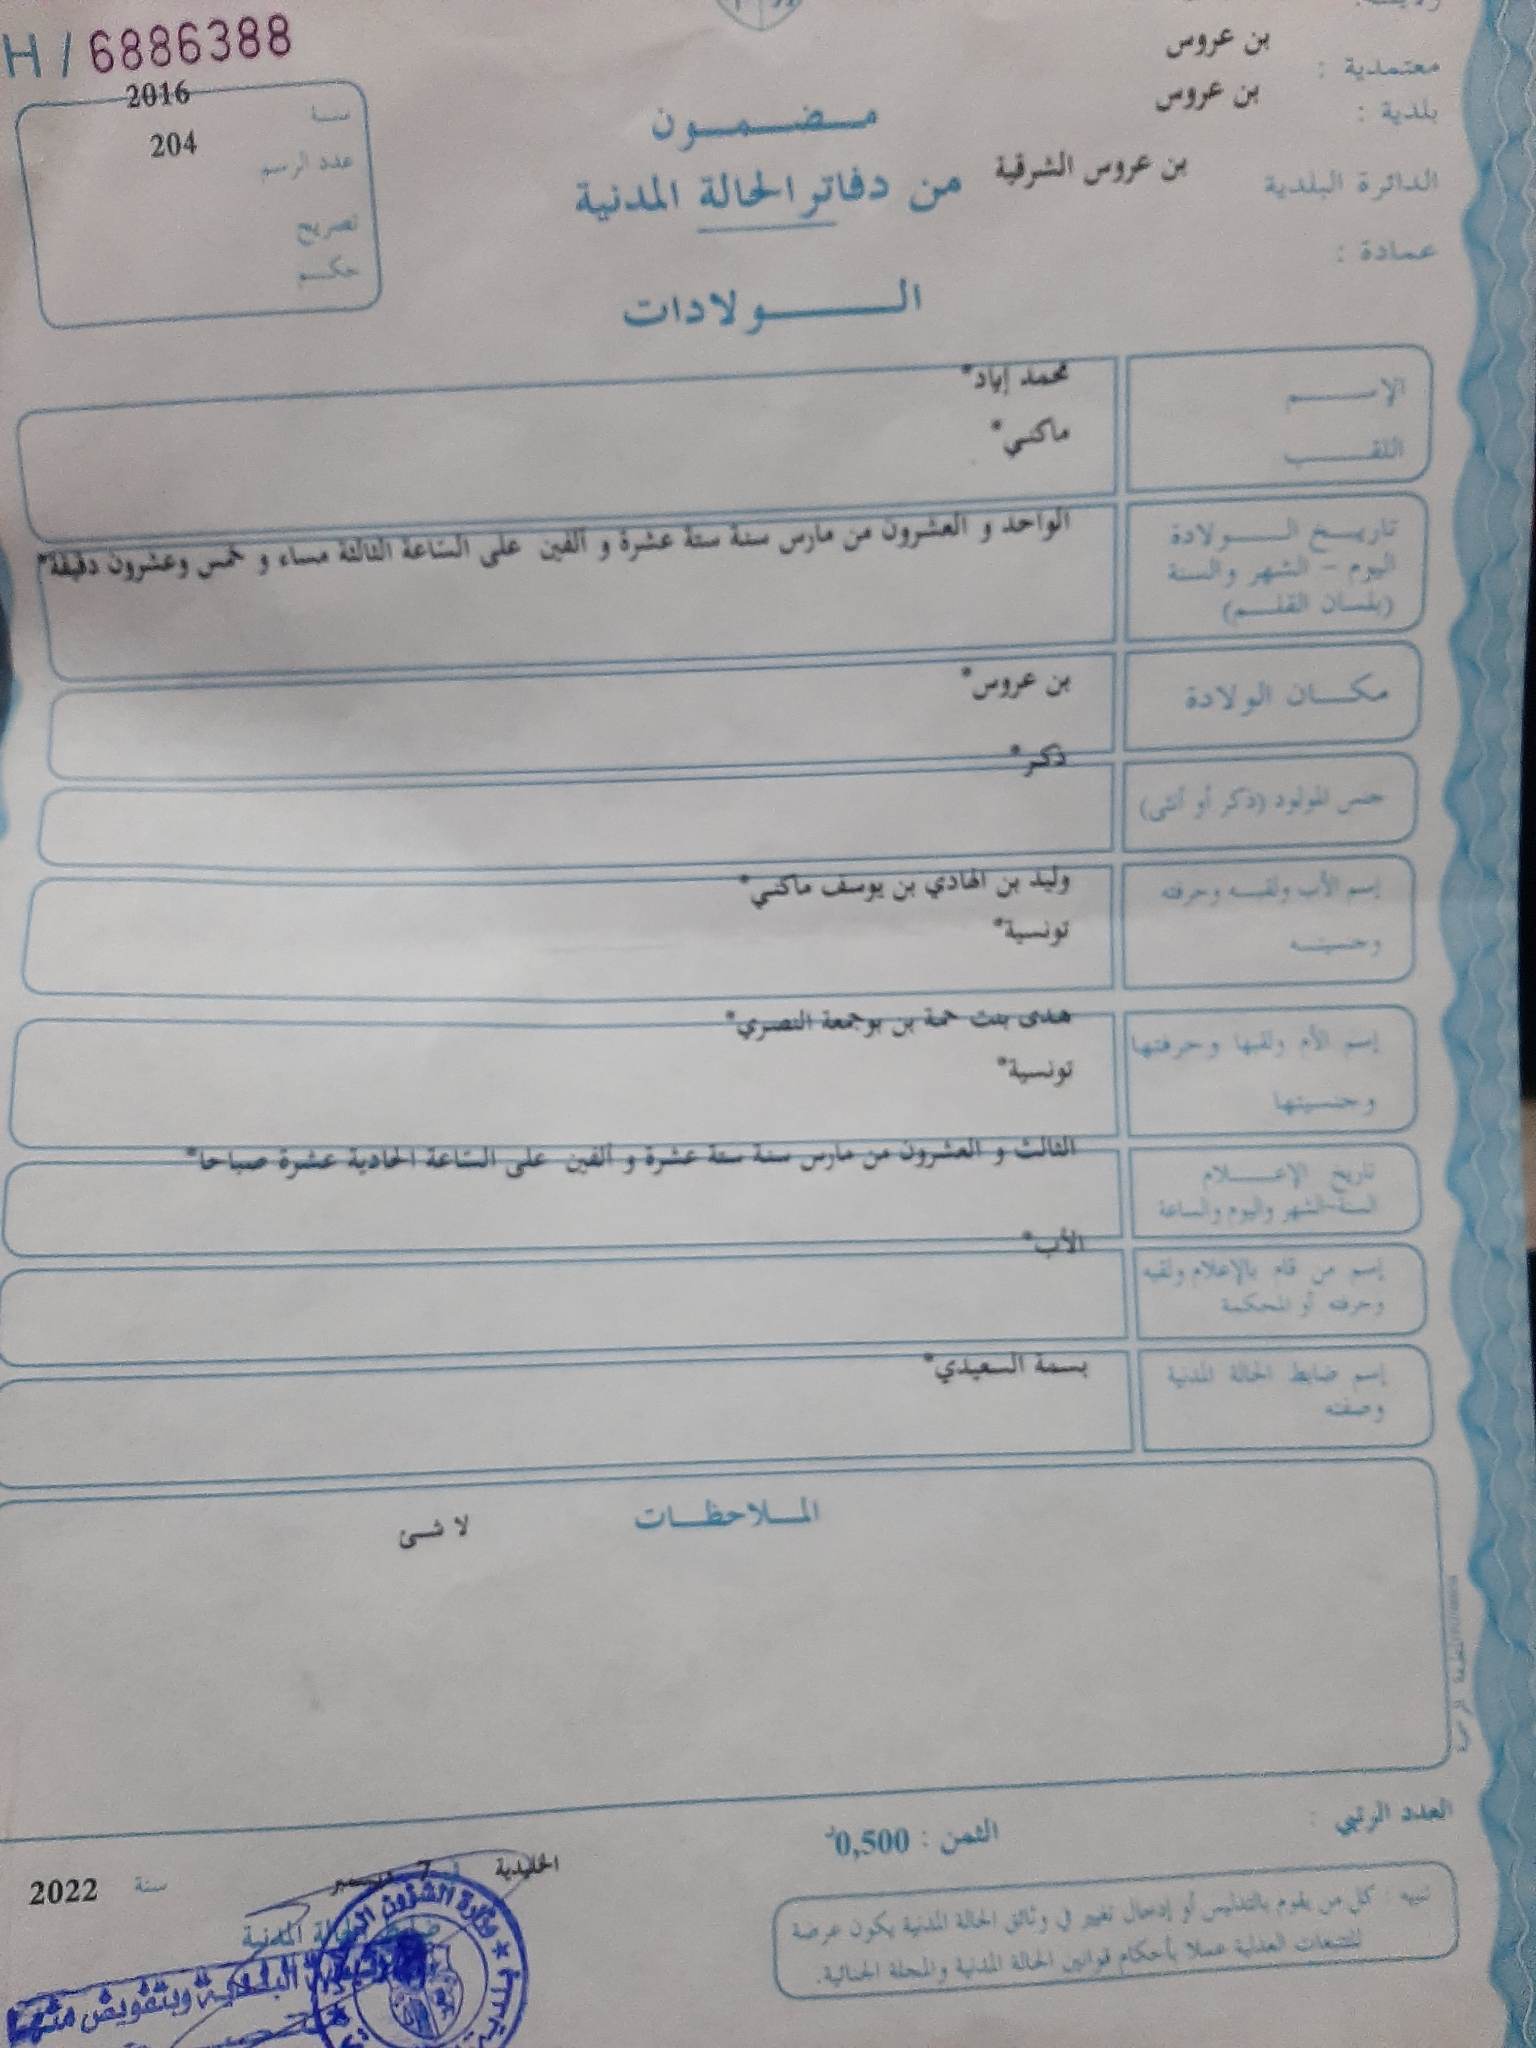 H / 6886388
بن عروس
معتمدية :
بن عروس
بلدية :
بن عروس الشرقية
الدائرة البلدية
عمادة :
2016
سنة
204
عدد الرسم
تصريح
حكم
مضمون
من دفاتر الحالة المدنية
الولادات
الإسم
محمد إياد*
اللقب
ماكني*
تاريخ الولادة
اليوم - الشهر والسنة
(بلسان القلم)
الواحد و العشرون من مارس سنة ستة عشرة و ألفين على الساعة الثالثة مساء و خمس وعشرون دقيقة*
مكان الولادة
بن عروس*
جنس المولود (ذكر أو أنثى)
ذكر*
إسم الأب ولقبه وحرفته
وجنسيته
وليد بن الهادي بن يوسف ماكني*
تونسية*
إسم الأم ولقبها وحرفتها
وجنسيتها
هدى بنت حمة بن بوجمعة النصري*
تونسية*
تاريخ الإعلام
السنة-الشهر واليوم والساعة
الثالث و العشرون من مارس سنة ستة عشرة و ألفين على الساعة الحادية عشرة صباحا*
إسم من قام بالإعلام ولقبه
وحرفته أو المحكمة
الأب*
إسم ضابط الحالة المدنية
وصفته
بسمة السعيدي*
الملاحظات
لا شئ
العدد الرتبي :
الثمن : 0,500د
تنبيه : كل من يقوم بالتدليس أو إدخال تغيير في وثائق الحالة المدنية يكون عرضة
للتتبعات العدلية عملا بأحكام قوانين الحالة المدنية والمجلة الجنائية.
الخليدية في 7 سنة 2022
ضابط الحالة المدنية
وزارة الشؤون
البلدية وبتفويض منها